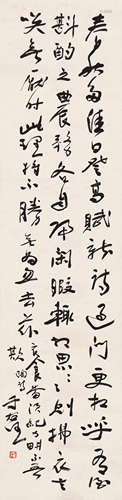 春秋多佳日登高賦新詩過門更相呼有酒
斟酌之農務各自歸閑暇輒相思則披衣言
笑無厭時此理將不勝無為忽去茲衣食當須紀力耕不吾
欺陶詩